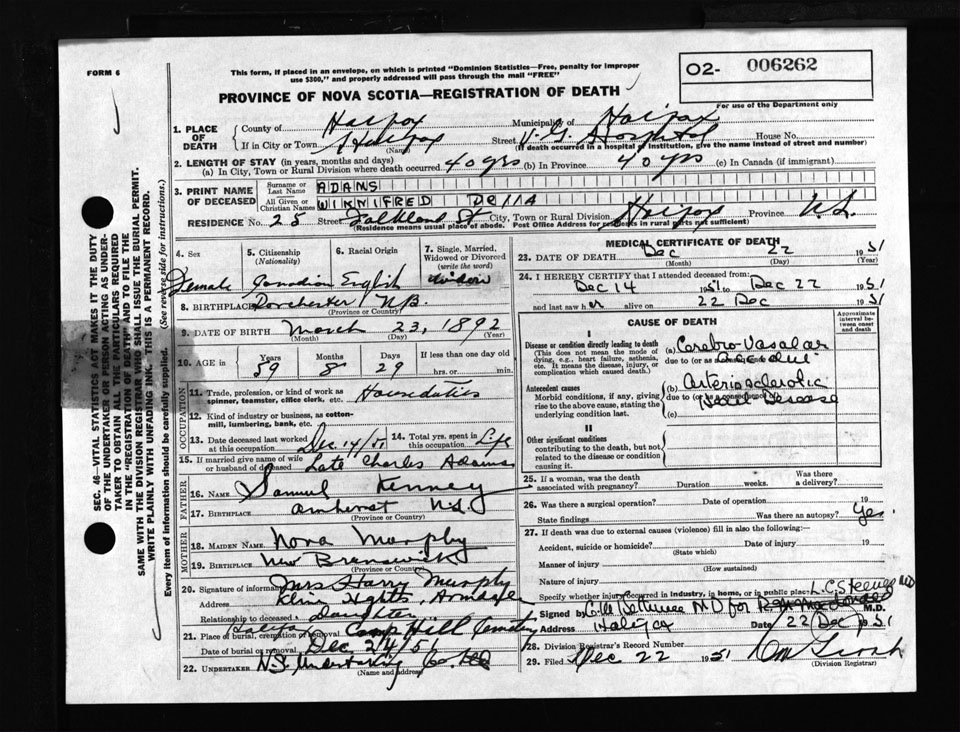 FORM 6
This form, if placed in an envelope, on which is printed "Dominion Statistics—Free, penalty for improper
use $300," and properly addressed will pass through the mail "FREE"
02- 006262
For use of the Department only
PROVINCE OF NOVA SCOTIA—REGISTRATION OF DEATH
1. PLACE OF DEATH
County of Halifax Municipality of Halifax
If in City or Town Halifax Street V.G. Hospital House No.
(Name) (If death occurred in a hospital or institution, give the name instead of street and number)
2. LENGTH OF STAY (in years, months and days)
(a) In City, Town or Rural Division where death occurred 40 yrs (b) In Province 40 yrs (c) In Canada (if immigrant)
3. PRINT NAME OF DECEASED
Surname or Last Name ADAMS
All Given or Christian Names WINNIFRED DELLA
RESIDENCE No. 25 Street Falkland St City, Town or Rural Division Halifax Province N.S.
(Residence means usual place of abode. Post Office Address for residents in rural parts not sufficient)
4. Sex
Female
5. Citizenship (Nationality)
Canadian
6. Racial Origin
English
7. Single, Married, Widowed or Divorced (write the word)
widow
8. BIRTHPLACE Dorchester N.B.
(Province or Country)
9. DATE OF BIRTH March 23, 1892
(Month) (Day) (Year)
10. AGE in Years 59 Months 8 Days 29 If less than one day old hrs. or min.
OCCUPATION
11. Trade, profession, or kind of work as spinner, teamster, office clerk, etc. Houseduties
12. Kind of industry or business, as cotton-mill, lumbering, bank, etc.
13. Date deceased last worked at this occupation Dec 14/51
14. Total yrs. spent in this occupation Life
15. If married give name of wife or husband of deceased Late Charles Adams
FATHER
16. NAME Samuel Kenney
17. BIRTHPLACE Amherst N.S.
(Province or Country)
MOTHER
18. MAIDEN NAME Nova Murphy
19. BIRTHPLACE New Brunswick
(Province or Country)
20. Signature of informant Mrs Harry Murphy
Address Hghts, Armdale
Relationship to deceased Daughter
21. Place of burial, cremation or removal Halifax Camp Hill Cemetery
Date of burial or removal Dec 24/51
22. UNDERTAKER N.S. Undertaking Co Ltd
(Name and address)
MEDICAL CERTIFICATE OF DEATH
23. DATE OF DEATH Dec 22 1951
(Month) (Day) (Year)
24. I HEREBY CERTIFY that I attended deceased from:
Dec 14 1951 to Dec 22 1951
and last saw her alive on 22 Dec 1951
CAUSE OF DEATH
Approximate interval between onset and death
I
Disease or condition directly leading to death
(This does not mean the mode of dying, e.g., heart failure, asthenia, etc. It means the disease, injury, or complication which caused death.)
(a) Cerebro-Vascular
due to (or as
Antecedent causes
Morbid conditions, if any, giving rise to the above cause, stating the underlying condition last.
(b) Arteriosclerotic
due to (or as a consequence of)
Heart Disease
(c)
II
Other significant conditions
contributing to the death, but not related to the disease or condition causing it.
25. If a woman, was the death associated with pregnancy? Duration weeks. Was there a delivery?
26. Was there a surgical operation? Date of operation 19
State findings Was there an autopsy? Yes.
27. If death was due to external causes (violence) fill in also the following:—
Accident, suicide or homicide? Date of injury 19
(State which)
Manner of injury
(How sustained)
Nature of injury
Specify whether injury occurred in industry, in home, or in public place L.C. Steeves MD
Signed by MD for M.D.
Address Halifax Date 22 Dec 1951
28. Division Registrar's Record Number
29. Filed Dec 22 1951
(Division Registrar)
SEC. 46—VITAL STATISTICS ACT MAKES IT THE DUTY
OF THE UNDERTAKER OR PERSON ACTING AS UNDER-
TAKER TO OBTAIN ALL THE PARTICULARS REQUIRED
IN THE "REGISTRATION OF DEATH" AND TO FILE THE
SAME WITH THE DIVISION REGISTRAR WHO SHALL ISSUE THE BURIAL PERMIT.
WRITE PLAINLY WITH UNFADING INK. THIS IS A PERMANENT RECORD.
Every item of information should be carefully supplied. (See reverse side for instructions.)